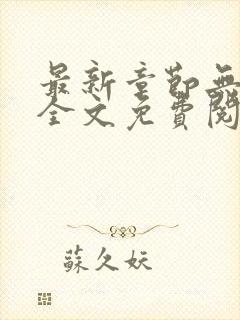 最新章節無
全文免費閱
蘇久妖